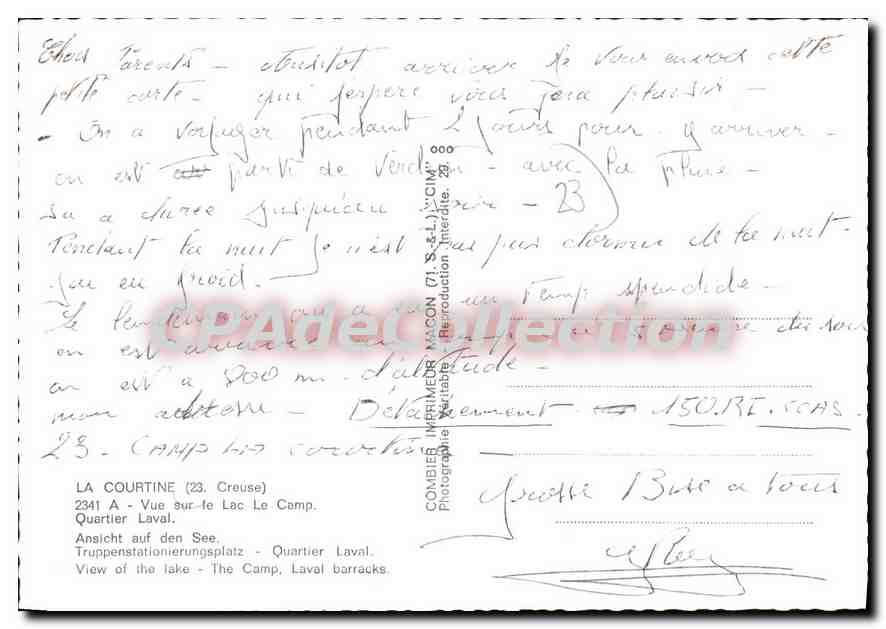 Chers Parents - Aussitot arriver Je vous envois cette
petite carte - qui j'espere vous fera plaisir -
- On a voyager pendant 2 jours pour y arriver -
on est parti de Verdun - avec la pluie -
sa a duree jusqu'au soir - 23
Pendant la nuit je n'est pas pus dormir de la nuit -
j'au eu froid. -
Le lendemain on a un temp splendide -
on est arrivée du soir
on est a 800 m. d'altitude -
mon adresse - Détachement 150. RI. CCAS.
23 - CAMP LA Courtine
Grosse Bise a tous
CPAdeCollection
COMBIER IMPRIMEUR MACON (71. S.-&-L.) "CIM"
Photographie Véritable - Reproduction Interdite. 29.
LA COURTINE (23. Creuse)
2341 A - Vue sur le Lac Le Camp.
Quartier Laval.
Ansicht auf den See.
Truppenstationierungsplatz - Quartier Laval.
View of the lake - The Camp, Laval barracks.